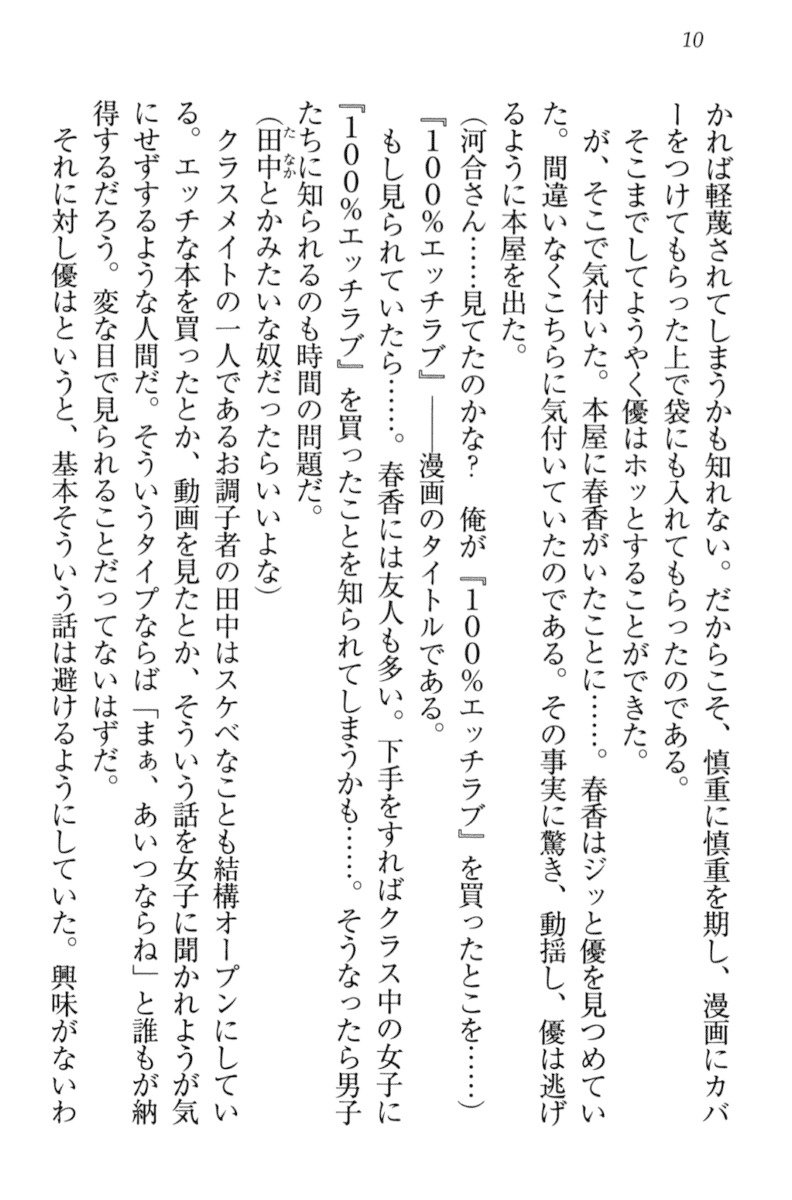 10
かれば軽蔑されてしまうかも知れない。だからこそ、慎重に慎重を期し、漫画にカバ
ーをつけてもらった上で袋にも入れてもらったのである。
そこまでしてようやく優はホッとすることができた。
が、そこで気付いた。本屋に春香がいたことに……。春香はジッと優を見つめてい
た。間違いなくこちらに気付いていたのである。その事実に驚き、動揺し、優は逃げ
るように本屋を出た。
(河合さん……見てたのかな? 俺が『100%エッチラブ』を買ったとこを……)
『100%エッチラブ』――漫画のタイトルである。
もし見られていたら……。春香には友人も多い。下手をすればクラス中の女子に
『100%エッチラブ』を買ったことを知られてしまうかも……。そうなったら男子
たちに知られるのも時間の問題だ。
(田中とかみたいな奴だったらいいよな)
クラスメイトの一人であるお調子者の田中はスケベなことも結構オープンにしてい
る。エッチな本を買ったとか、動画を見たとか、そういう話を女子に聞かれようが気
にせずするような人間だ。そういうタイプならば「まぁ、あいつならね」と誰もが納
得するだろう。変な目で見られることだってないはずだ。
それに対し優はというと、基本そういう話は避けるようにしていた。興味がないわ